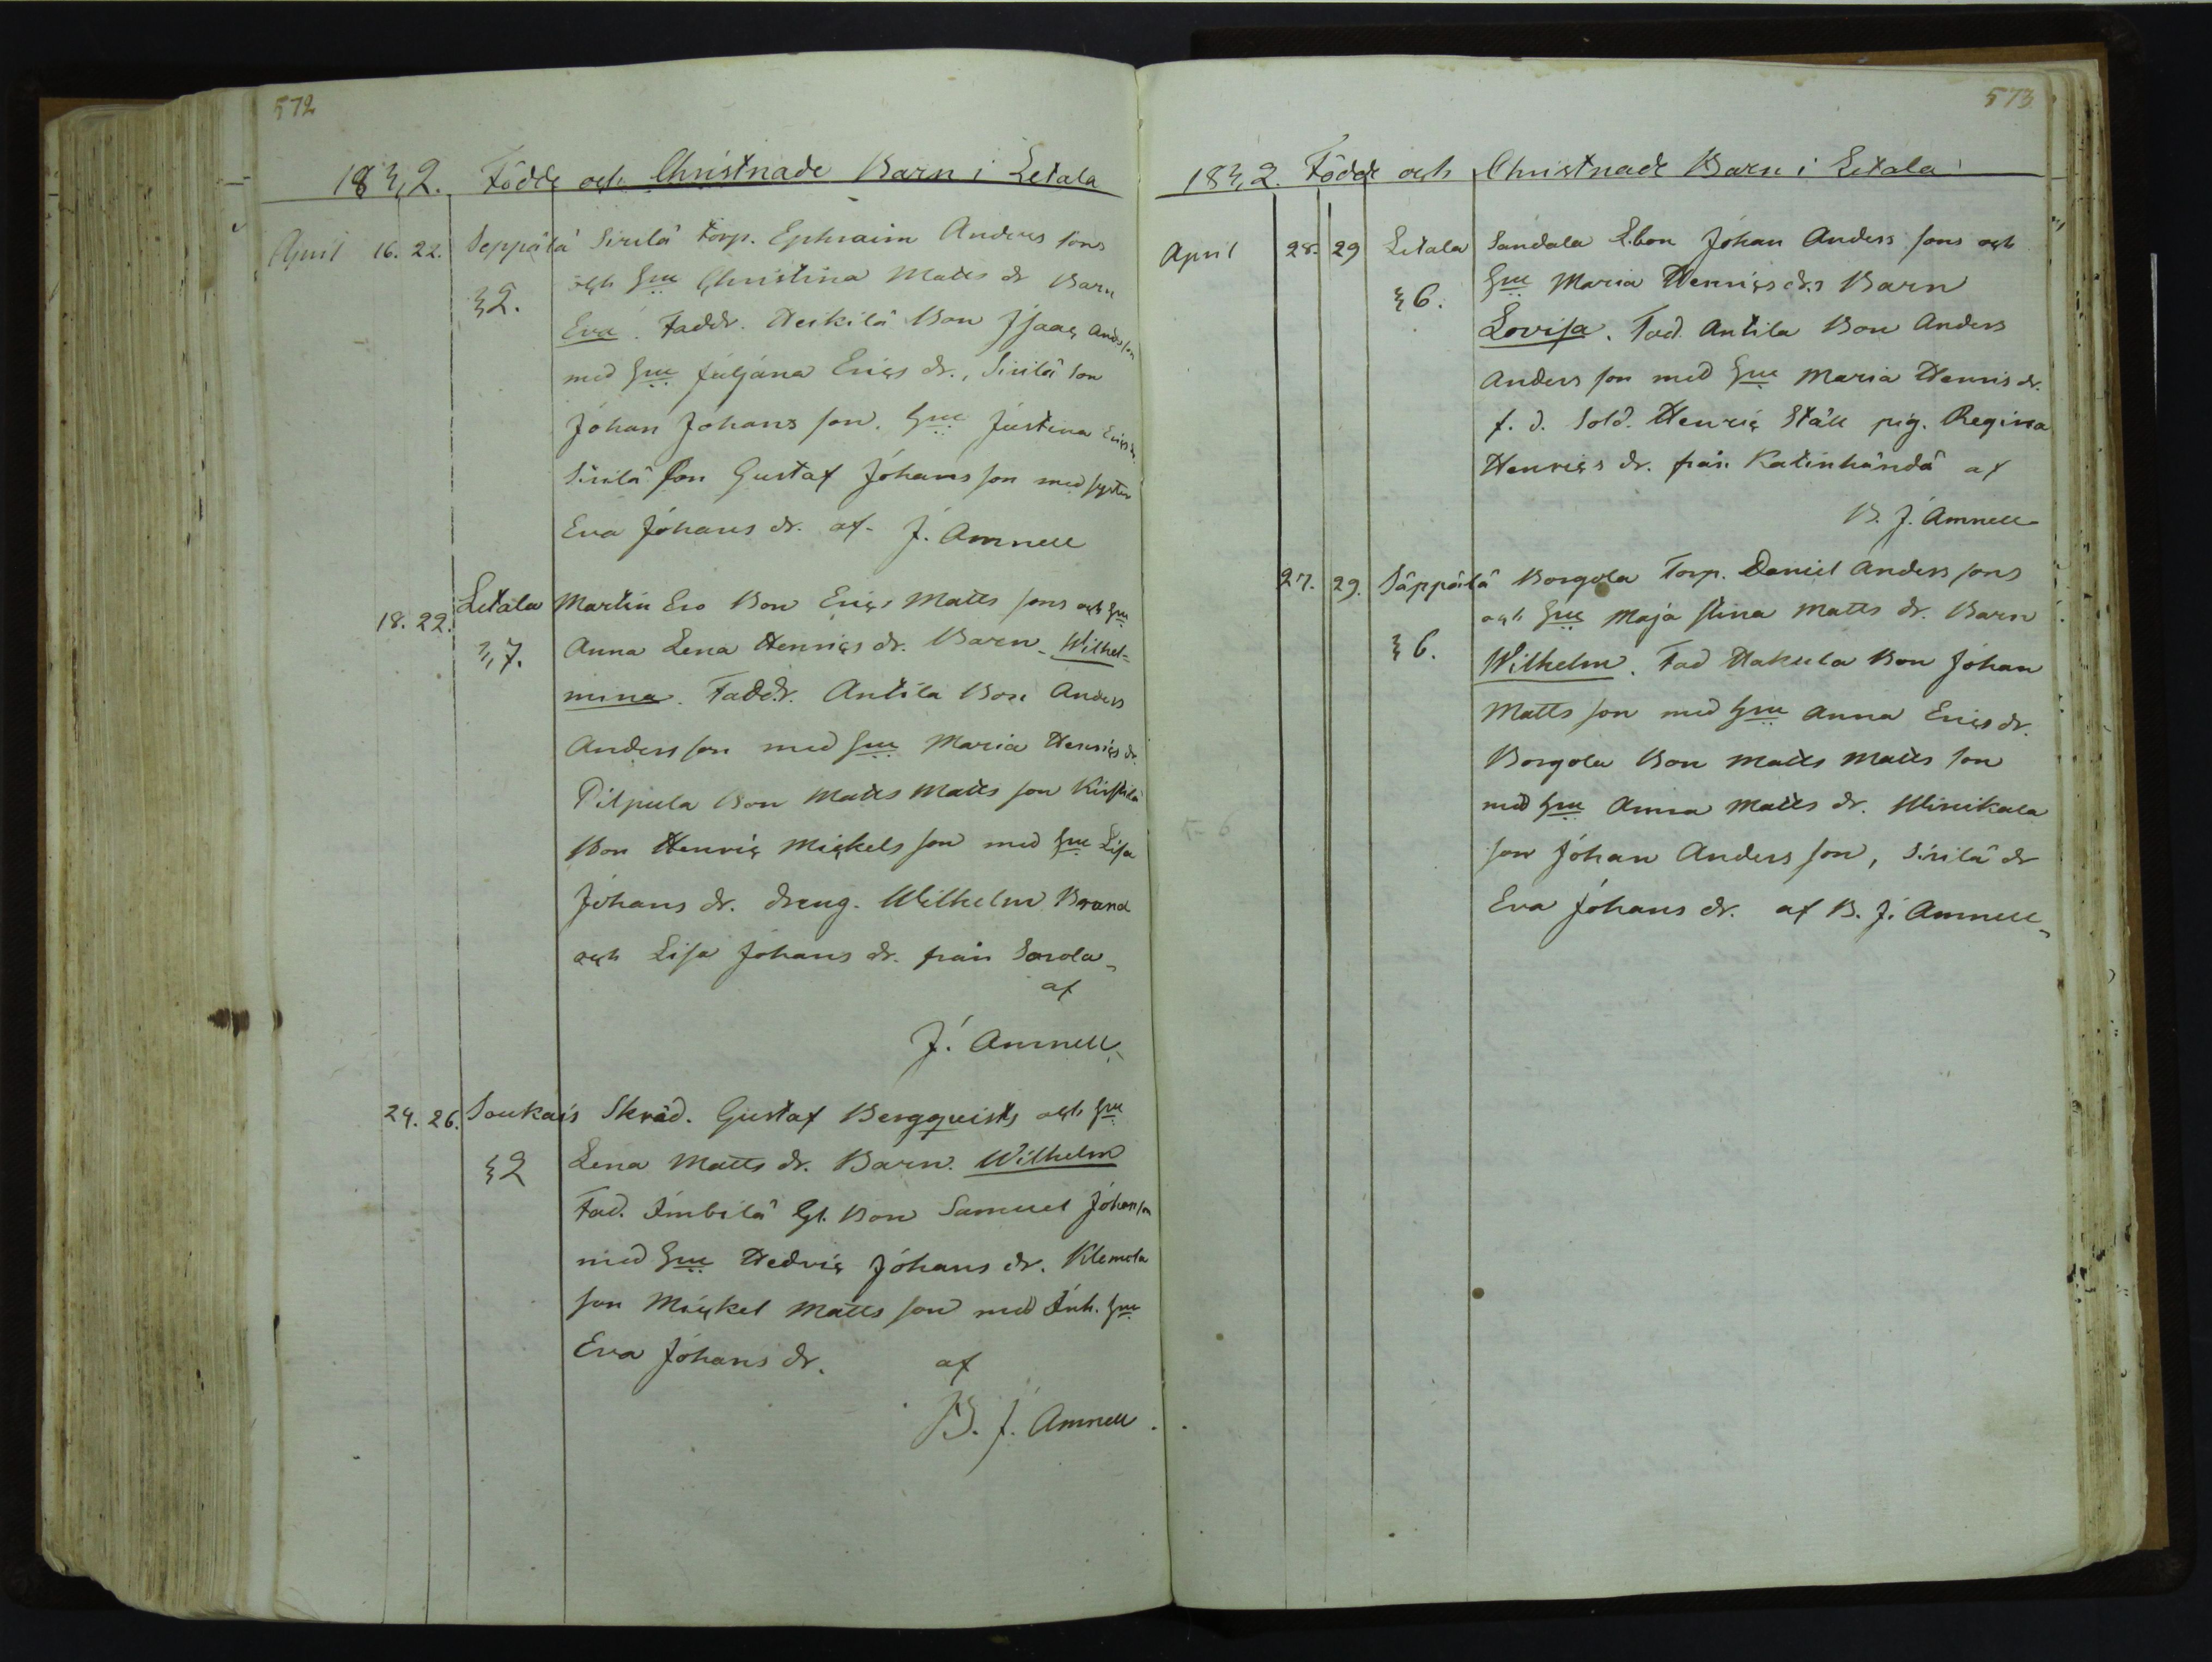 572
1832. Födde och Christnade Barn i Letala
April 16. 22. Seppälä Sirilä torp. Ephraim Anders sons
och Hu Christina Matts dr Barn
32. Eva. Faddr. Heikilä Bon Isaac Andersson
med Hu Juljana Erics dr., Sirilä son
Johan Johans son. Hu Justina Erics dr.
Sirilä son Gustaf Johans son med syster
Eva Johans dr. af J. Amnell
18. 22. Letala Martin Ero Bon Erics Matts sons och Hu
37. Anna Lena Henrics dr. Barn Wilhel-
mina. Faddr. Antila Bon Anders
Anders son med Hu Maria Henrics dr
Pilpula Bon Matts Matts son Kirstilä
Bon Henric Mickels son med Hu Lisa
Johans dr. dreng. Wilhelm Brand
och Lisa Johans dr. från Sorola
af
J. Amnell
24. 26. Soukais Skräd. Gustaf Bergquists och Hu
32 Lena Matts dr. Barn. Wilhelm
Fad. Imbilä Gl. Bon Samuel Johansson
med Hu Hedvic Johans dr. Klemola
son Mickel Matts son med Inh. Hu
Eva Johans dr. af
B. J. Amnell.
573
1832. Födde och Christnade Barn i Letala
April 28. 29 Letala Sandala Lbon Johan Anders sons och
36. Hu Maria Henrics drs Barn
Lovisa. Fad. Antila Bon Anders
Anders son med Hu Maria Henris dr.
f. d. Sold. Henric Ståll pig. Regina
Henrics dr. från Katinhändä af
B. J. Amnell
27. 29. Säppälä Borgola Torp. Daniel Anders sons
och Hu Maja Stina Matts dr. Barn
36. Wilhelm. Fad Hakula Bon Johan
Matts son med Hu Anna Erics dr.
Borgola Bon Matts Matts son
med Hu Anna Matts dr. Winikala
son Johan Anders son, Sirilä dr
Eva Johans dr. af B. J. Amnell